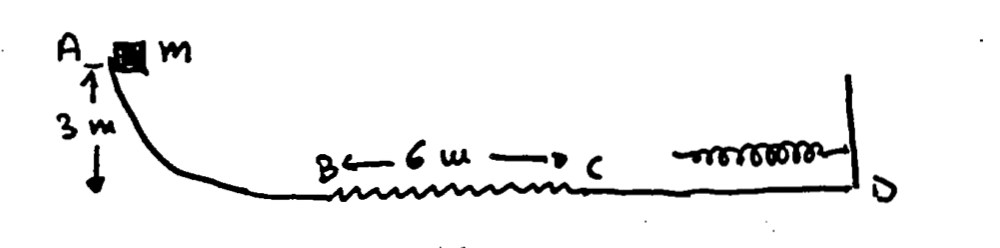 A m
3 m
B 6 m C
D